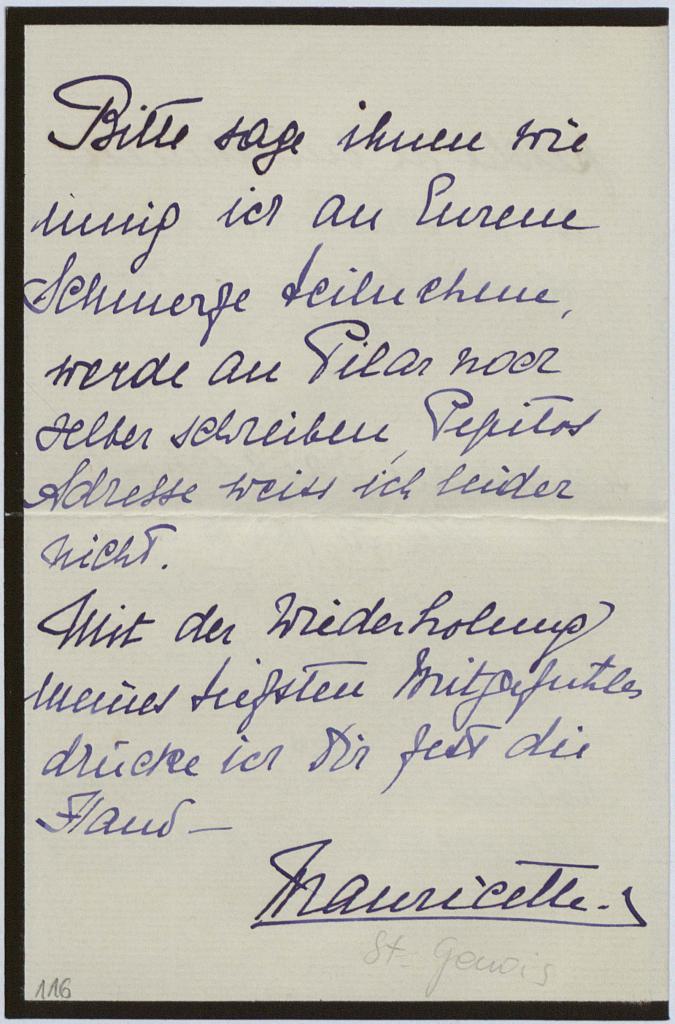 Bitte sage ihnen wie
innig ich an Eurem
Schmerze teilnehme,
werde an Pilar noch
selber schreiben, Pepitos
Adresse weiss ich leider
nicht.
Mit der Wiederholung
meines tiefsten Mitgefühles
drücke ich Dir fest die
Hand –
Mauricette.
St-Genois
116